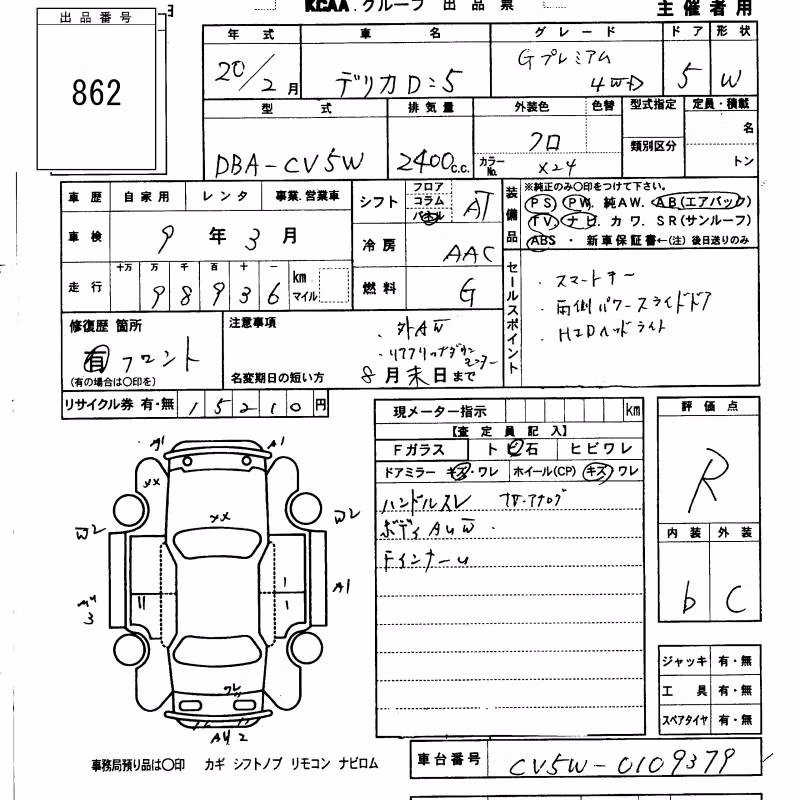 KCAA.グループ 出品票
主催者用
出品番号
862
年式 車名 グレード ドア 形状
20/2月 デリカD:5 Gプレミアム 4WD 5 W
型式 排気量 外装色 色替 型式指定 定員・積載
DBA-CV5W 2400c.c. クロ カラーNo. X24 類別区分 名 トン
車歴 自家用 レンタ 事業.営業車
車検 9年3月
走行 十万 万 千 百 十 一 km マイル
9 8 9 3 6
シフト フロア コラム パネル AT
冷房 AAC
燃料 G
装備品
※純正のみ〇印をつけて下さい。
PS) PW. 純AW. AB(エアバッグ)
TV. ナビ. カワ. SR(サンルーフ)
ABS ・ 新車保証書←(注) 後日送りのみ
セールスポイント
・スマートキー
・両側パワースライドドア
・HIDヘッドライト
修復歴 箇所
有 フロント
(有の場合は〇印を)
注意事項
・外AW
・リアフリップダウンモニター
名変期日の短い方 8月末日まで
リサイクル券 有・無 15210円
現メーター指示 km
【査定員記入】
Fガラス トビ石 ヒビワレ
ドアミラー キズ・ワレ ホイール(CP) キズ ワレ
ハンドルスレ
ボディAUW.
評価点
R
内装 外装
b C
A1 A1
XX
XX
W2 W2
A1
3
ワレ
2
ジャッキ 有・無
工具 有・無
スペアタイヤ 有・無
事務局預り品は〇印 カギ シフトノブ リモコン ナビロム
車台番号 CV5W-0109379